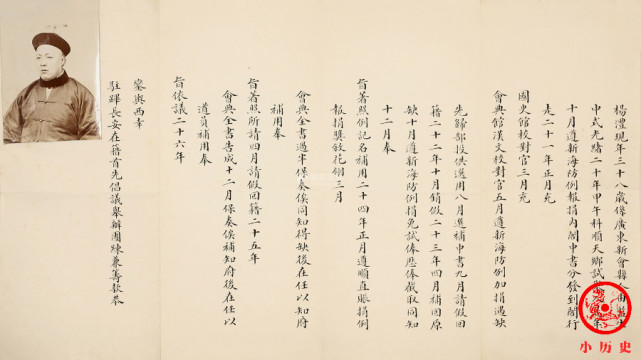 楊澧現年三十八歲係廣東新會縣人由監生
中式光緒二十年甲午科順天鄉試舉人是年
十月遵新海防例報捐內閣中書分發到閣行
走二十一年正月充
國史館校對官三月充
會典館漢文校對官五月遵新海防例加捐遇缺
先歸部投供選用八月選補中書九月請假回
籍二十二年十月銷假二十三年四月補回原
缺十月遵新海防例捐免試俸歷俸截取同知
十二月奉
旨著照例記名補用二十四年正月遵順直賑捐例
報捐獎敘花翎三月
會典全書過半保奏俟同知得缺後在任以知府
補用奉
旨著照所請四月請假回籍二十五年
會典全書告成十二月保奏俟補知府後在任以
道員補用奉
旨依議二十六年
鑾輿西幸
駐蹕長安在籍首先倡議舉辦團練兼籌款奉
小历史